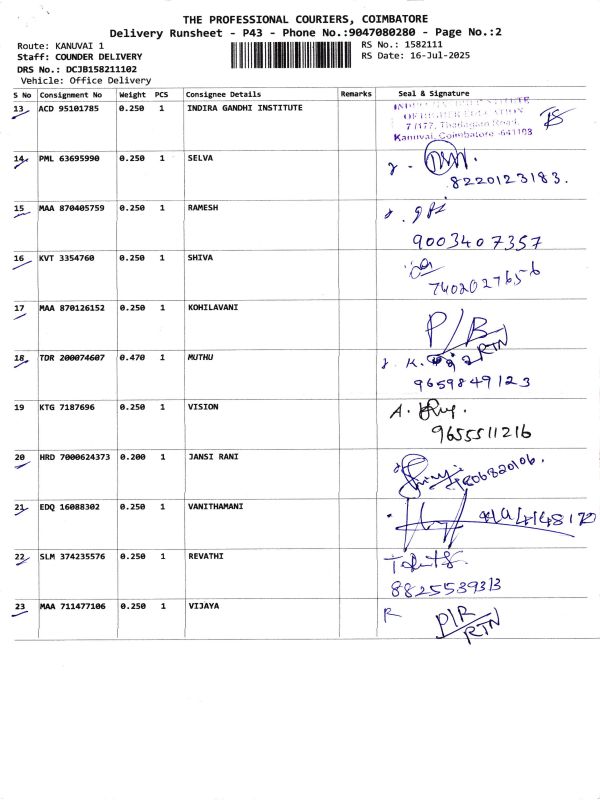 THE PROFESSIONAL COURIERS, COIMBATORE
Delivery Runsheet - P43 - Phone No.:9047080280 - Page No.:2
Route: KANUVAI 1
RS No.: 1582111
Staff: COUNDER DELIVERY
RS Date: 16-Jul-2025
DRS No.: DCJB158211102
Vehicle: Office Delivery
S No Consignment No Weight PCS Consignee Details Remarks Seal & Signature
13 ACD 95101785 0.250 1 INDIRA GANDHI INSTITUTE
7/177, Thadagam Road,
Kanuvai, Coimbatore -641108
14 PML 63695990 0.250 1 SELVA
8220123183.
15 MAA 870405759 0.250 1 RAMESH
9003407357
16 KVT 3354760 0.250 1 SHIVA
7402027656
17 MAA 870126152 0.250 1 KOHILAVANI
P/B
RTN
18 TDR 200074607 0.470 1 MUTHU
9659849123
19 KTG 7187696 0.250 1 VISION
9655511216
20 HRD 7000624373 0.200 1 JANSI RANI
21 EDQ 16088302 0.250 1 VANITHAMANI
22 SLM 374235576 0.250 1 REVATHI
8825539313
23 MAA 711477106 0.250 1 VIJAYA
R
P/R
RTN